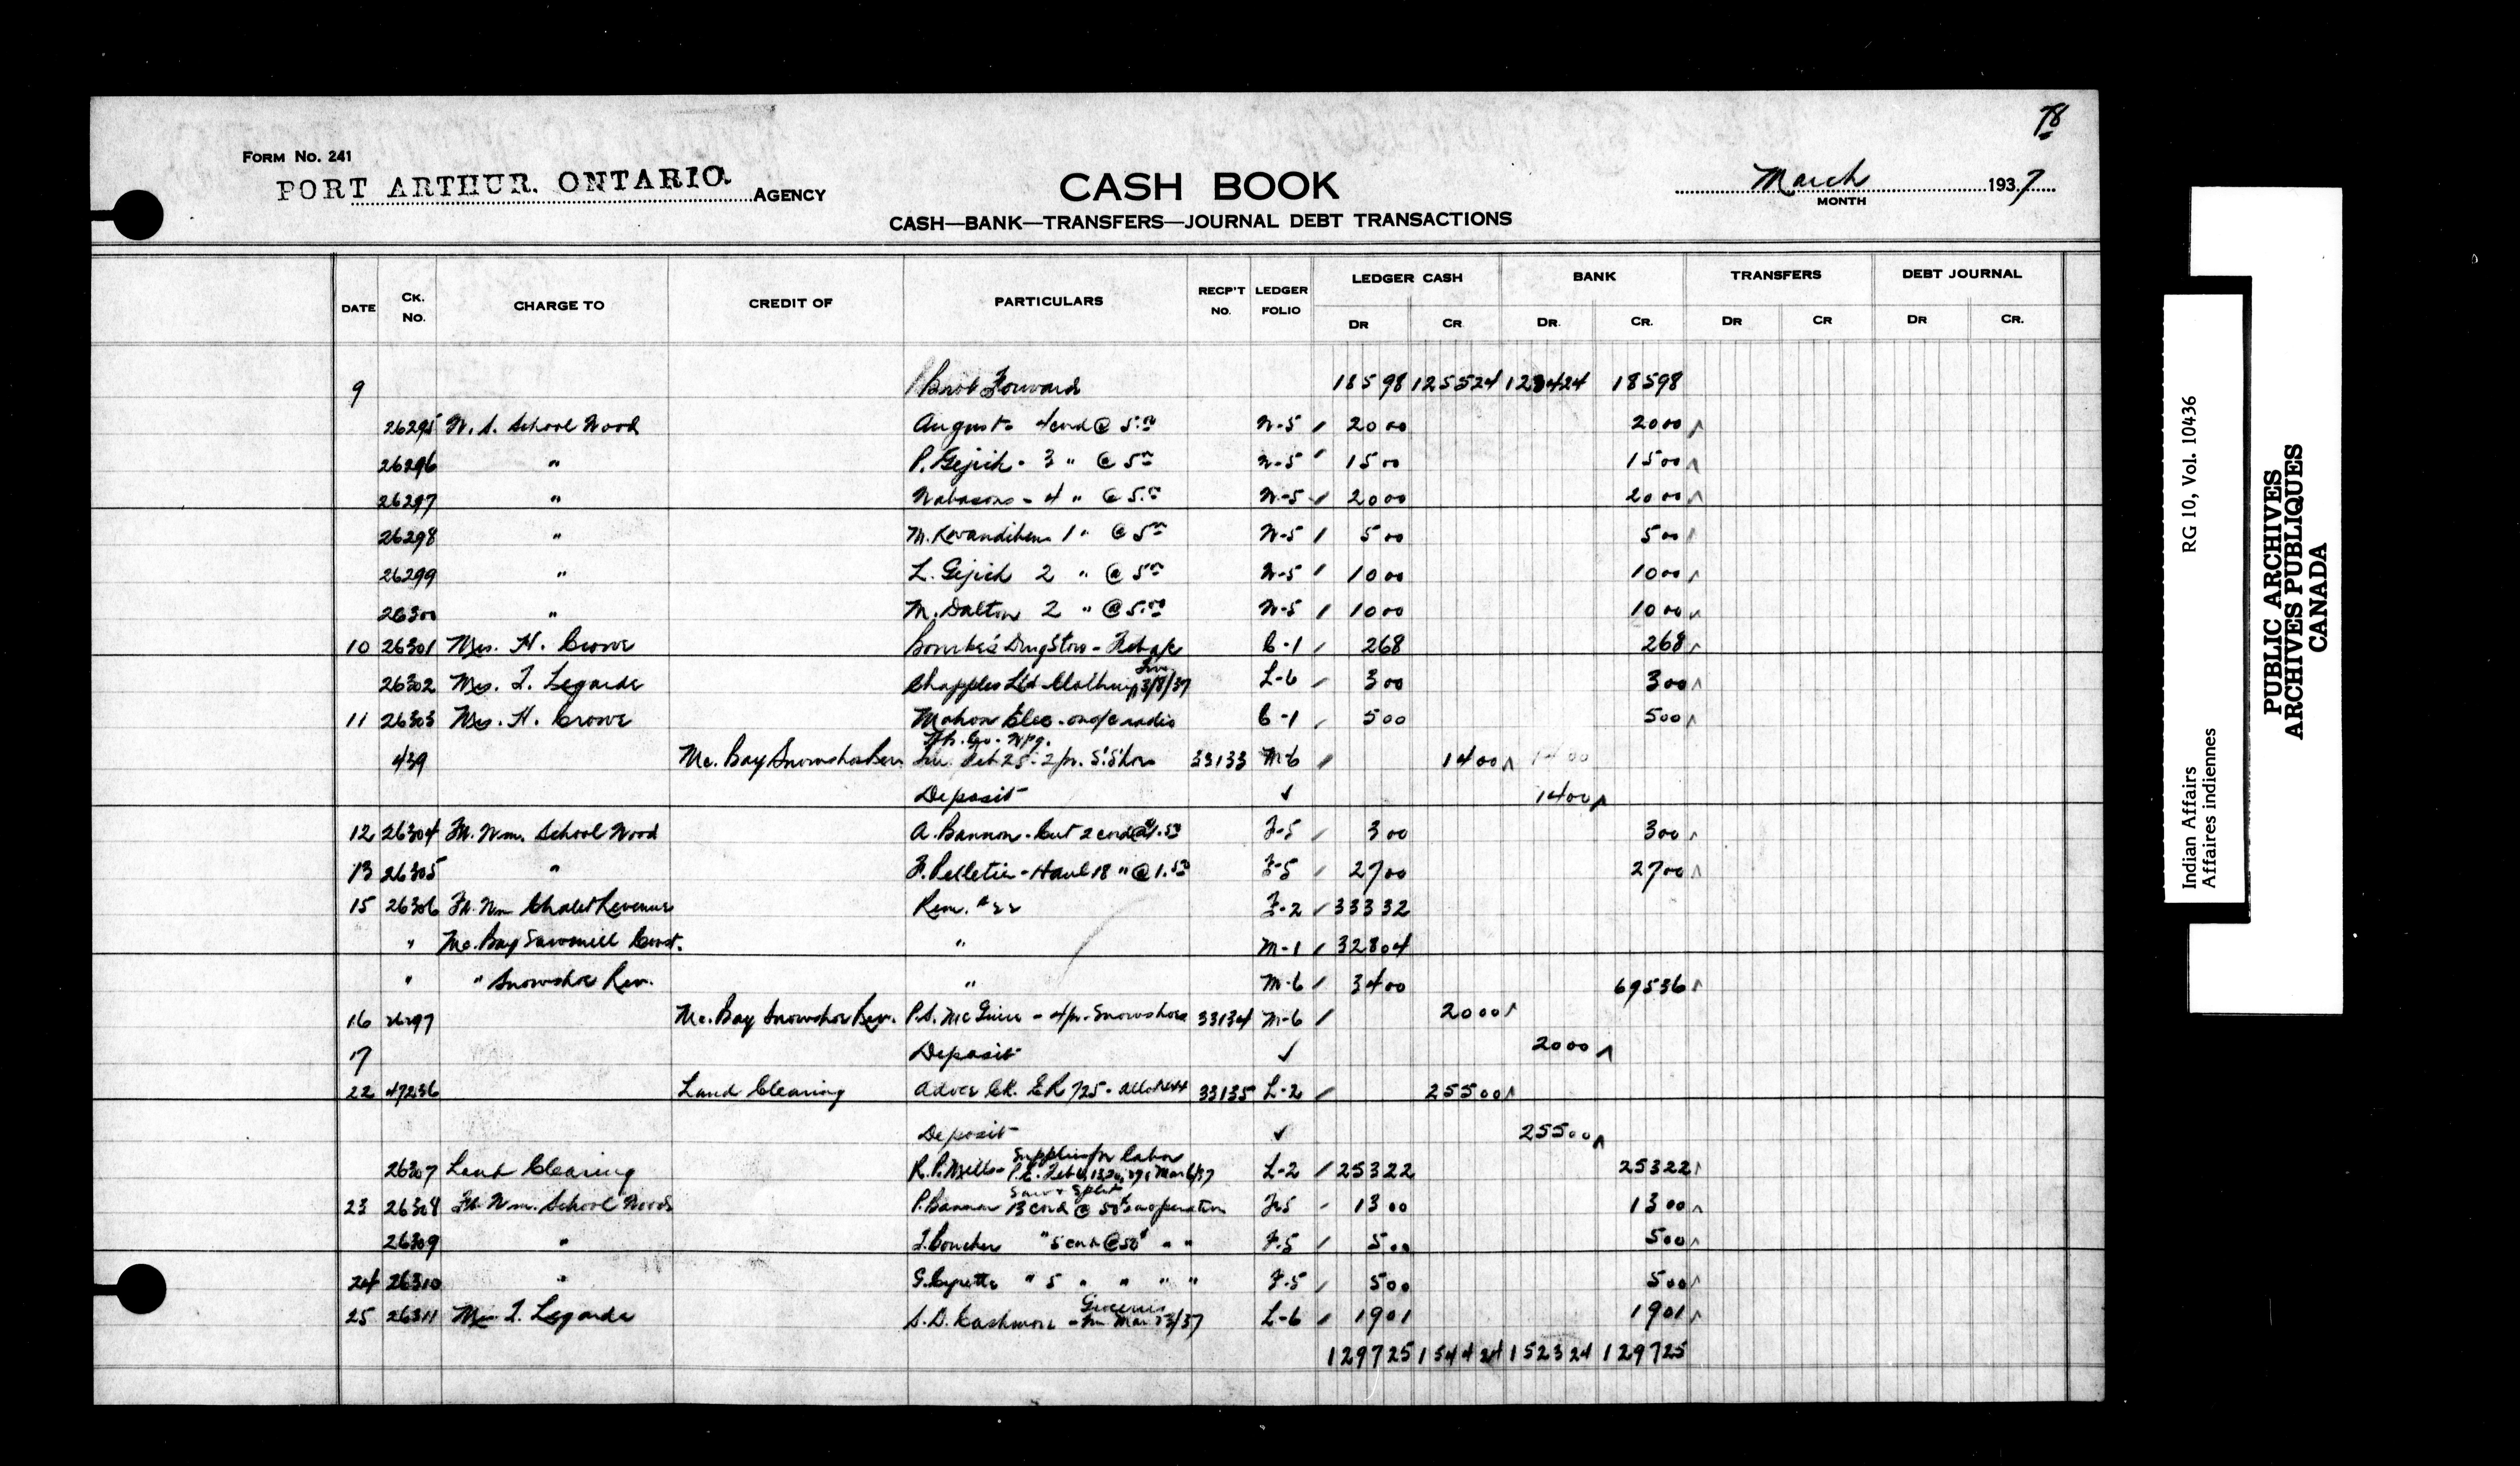 78
FORM NO. 241
PORT ARTHUR. ONTARIO. AGENCY
CASH BOOK
March 1937
MONTH
CASH—BANK—TRANSFERS—JOURNAL DEBT TRANSACTIONS
DATE CK. NO. CHARGE TO CREDIT OF PARTICULARS RECP'T NO. LEDGER FOLIO LEDGER CASH BANK TRANSFERS DEBT JOURNAL
DR CR DR. CR. DR CR DR CR.
9 Forward 185 98 1255 24 1234 24 185 98
26295 N. S. School Wood August - 4 cord @ 5.00 N-5 20 00 20 00
26296 " P. Gejick - 3 " @ 5 00 N-5 15 00 15 00
26297 " Nabasons - 4 " @ 5.00 N-5 20 00 20 00
26298 " M. 1 " @ 5 00 N-5 5 00 5 00
26299 " L. Gejick 2 " @ 5 00 N-5 10 00 10 00
26300 " M. Dalton 2 " @ 5.00 N-5 10 00 10 00
10 26301 Mrs. H. Crowe Drug Store - Feb a/c C-1 2 68 2 68
26302 Mrs. I. Legarde Chapples Ltd - Clothing Inv 3/8/37 L-6 3 00 3 00
11 26303 Mrs. H. Crowe Mahon Elec. - on a/c radio C-1 5 00 5 00
439 Mc. Bay Snowshoe Rev. Inv. Feb 25 - 2 pr. S'Shoes 33133 M-6 14 00 14 00
Deposit ✓ 14 00
12 26304 Ft. Wm. School Wood A. Bannon - Cut 2 cord @ 1.50 F-5 3 00 3 00
13 26305 " F. Pelletier - Haul 18 " @ 1.50 F-5 27 00 27 00
15 26306 Ft. Wm Chalet Revenue Rem. #22 F-2 333 32
" Mc. Bay Sawmill Const. " M-1 328 04
" " Snowshoe Rev. " M-6 34 00 695 36
16 26297 Mc. Bay Snowshoe Rev. P.S. McGuire - 4 pr. Snowshoes 33134 M-6 20 00
17 Deposit ✓ 20 00
22 47236 Land Clearing Advce Ck. ER 725 - 33135 L-2 255 00
Deposit ✓ 255 00
26307 Land Clearing R. P. Mills - Supplies for labor Feb 6, 13, 20, 27, Mar 6/37 L-2 253 22 253 22
23 26308 Ft. Wm. School Woods P. Bannon Saw & Split 13 cord @ 50¢ an operation F-5 13 00 13 00
26309 " I. Boucher " 5 cord @ 50¢ " " F-5 5 00 5 00
24 26310 " G. Cyrette " 5 " " " " F-5 5 00 5 00
25 26311 Mrs. I. Legarde S. D. Cashmon - Groceries Inv Mar 23/37 L-6 19 01 19 01
1297 25 1544 24 1523 24 1297 25
Indian Affairs RG 10, Vol. 10436
Affaires indiennes
PUBLIC ARCHIVES
ARCHIVES PUBLIQUES
CANADA